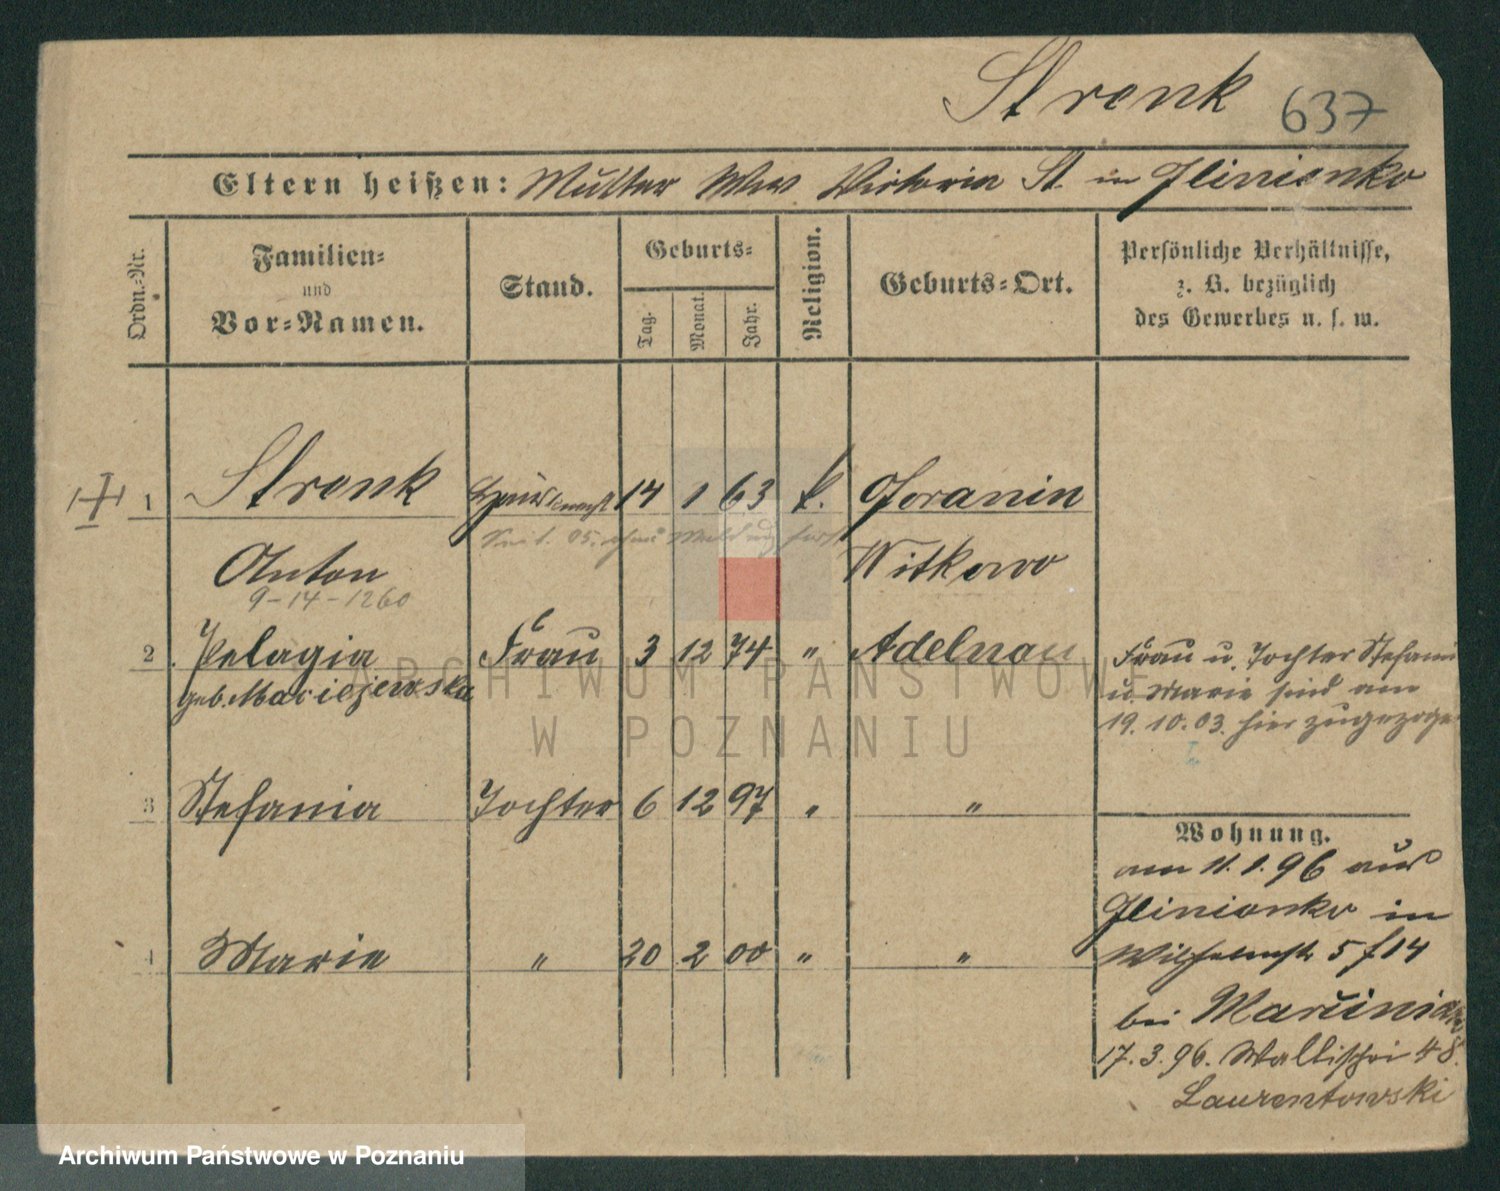 Stronk 637
Eltern heißen: Mutter Wwe Victoria St. in Glinionko
Ordn.-Nr.
Familien-
und
Vor-Namen.
Stand.
Geburts-
Tag.
Monat.
Jahr.
Religion.
Geburts-Ort.
Persönliche Verhältnisse,
z. B. bezüglich
des Gewerbes u. s. w.
1 Stronk Hausknecht 14 1 63 k. Goranin
Seit. 05. ohne Meldung fort
Anton Witkowo
9-14-1260
2 Pelagia Frau 3 12 74 " Adelnau
geb. Maciejewska
Frau u. Tochter Stefani
u. Marie sind am
19. 10. 03. hier zugezoge
3 Stefania Tochter 6 12 97 " "
4 Marie " 20 2 00 " "
Wohnung.
am 11. 1. 96 aus
Glinionko in
Wilhelmstr 5 f 14
bei
17. 3. 96. Wallischei 48.
Laurentowski
ARCHIWUM PAŃSTWOWE
W POZNANIU
Archiwum Państwowe w Poznaniu